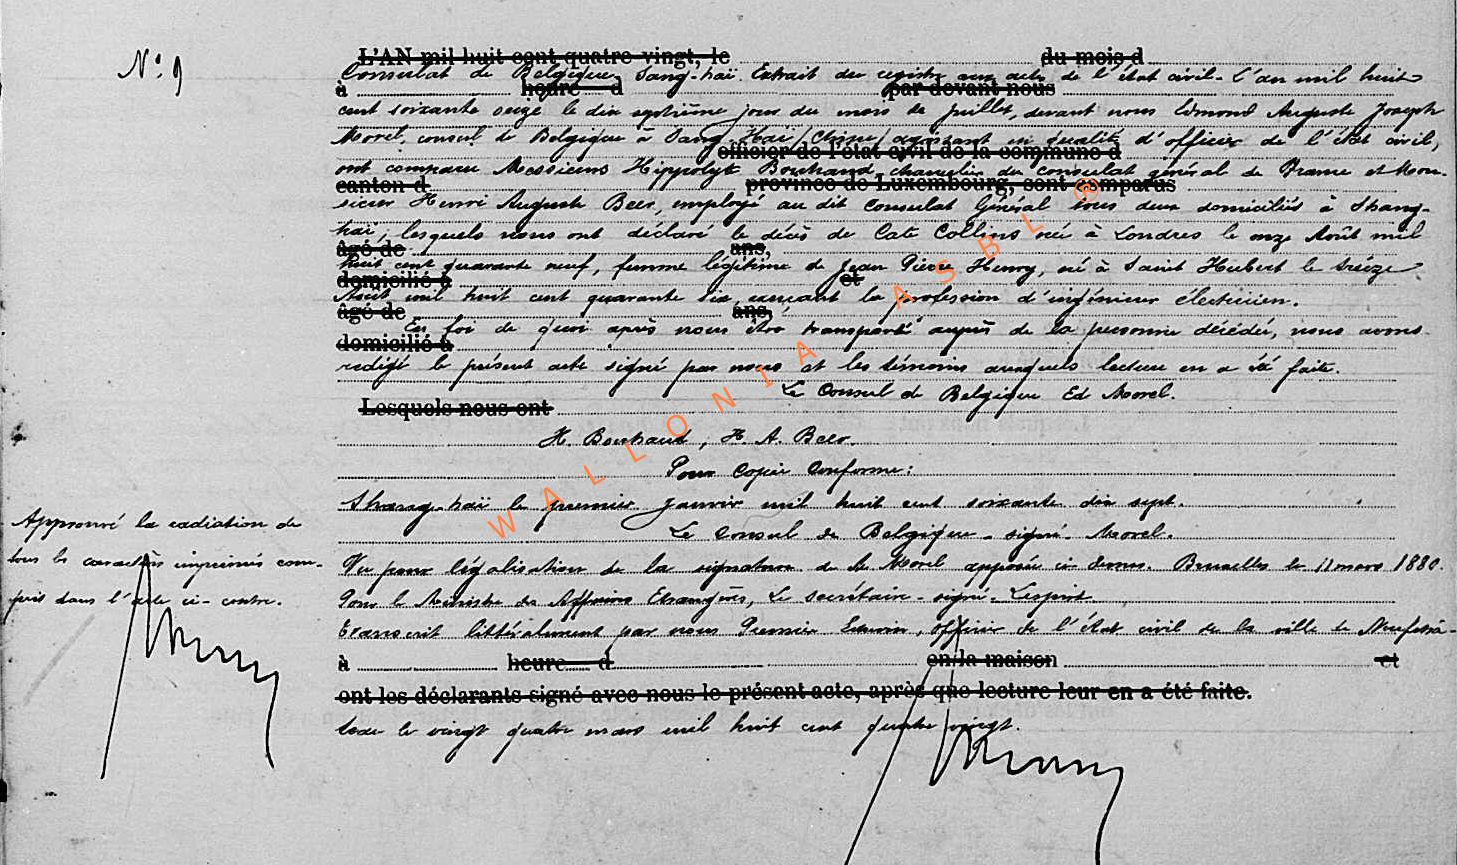 N° 9
L'AN mil huit cent quatre-vingt, le du mois d
Consulat de Belgique, Sang-haï. Extrait du registre aux actes de l'état civil. L'an mil huit
à heure d par devant nous
cent soixante seize le dix septième jour du mois de Juillet, devant nous Edmond Auguste Joseph
Morel, consul de Belgique à Sang-Haï (Chine) agissant en qualité d'officier de l'état civil,
officier de l'état civil de la commune d
ont comparu Messieurs Hippolyte chancelier du consulat général de France et Mon-
canton d province de Luxembourg, sont comparus
sieur Henri Auguste Beer, employé au dit Consulat Général tous deux domiciliés à Shang-
haï, lesquels nous ont déclaré le décès de Cate Collins née à Londres le onze Août mil
âgé de ans,
huit cent quarante neuf, femme légitime de Jean Pierre Henry, né à Saint Hubert le treize
domicilié à et
Août mil huit cent quarante six, exerçant la profession d'ingénieur électricien.
âgé de ans,
En foi de quoi après nous être transporté auprès de la personne décédée, nous avons
domicilié à
rédigé le présent acte signé par nous et les témoins auxquels lecture en a été faite.
Le Consul de Belgique Ed Morel.
Lesquels nous ont
H. , H. A. Beer.
Pour Copie Conforme:
Shang-haï le premier Janvier mil huit cent soixante dix sept.
Le Consul de Belgique - signé - Morel.
Approuvé la radiation de
tous les caractères imprimés com-
pris dans l'acte ci-contre.
Vu pour légalisation de la signature de Mr Morel apposée ci dessus. Bruxelles le 11 mars 1880.
Pour le Ministre des Affaires Etrangères, Le Secrétaire - signé - Lespirt
Transcrit littéralement par nous Premier Echevin, officier de l'état civil de la ville de Neufchâ-
à heure d en la maison et
ont les déclarants signé avec nous le présent acte, après que lecture leur en a été faite.
teau le vingt quatre mars mil huit cent quatre vingt.
WALLONIA ASBL ®